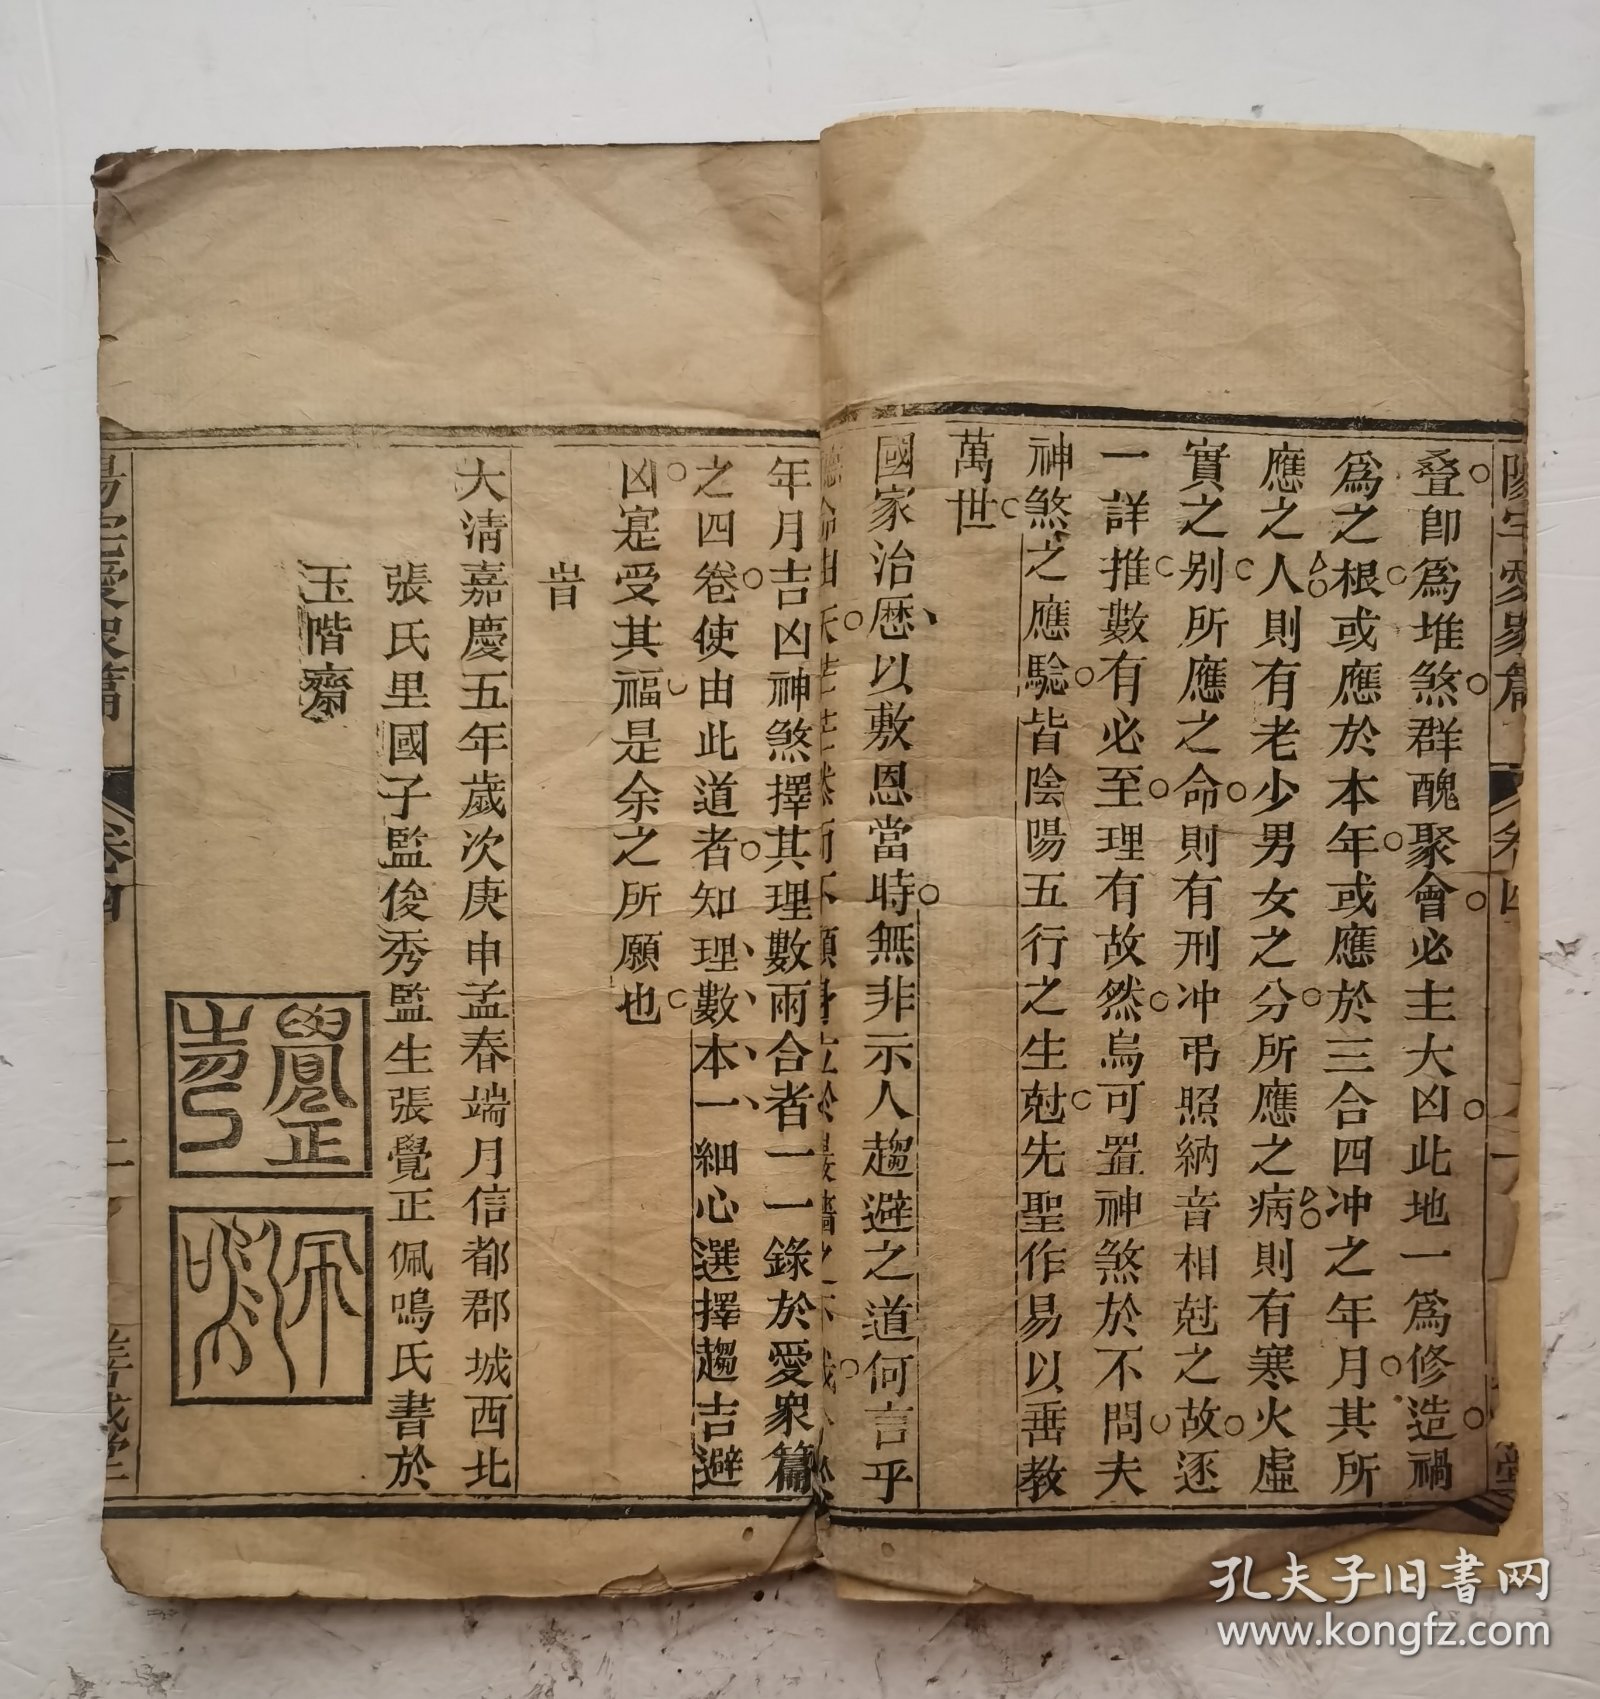 叠卽爲堆煞群醜聚會必主大凶此地一爲修造禍
爲之根或應於本年或應於三合四冲之年月其所
應之人則有老少男女之分所應之病則有寒火虛
實之別所應之命則有刑冲弔照納音相尅之故逐
一詳推數有必至理有故然烏可置神煞於不問夫
神煞之應騐皆陰陽五行之生尅先聖作易以垂教
萬世
國家治歷以敷恩當時無非示人趨避之道何言乎
年月吉凶神煞擇其理數兩合者一一錄於愛衆篇
之四卷使由此道者知理數本一細心選擇趨吉避
凶寔受其福是余之所願也
旹
大清嘉慶五年歲次庚申孟春端月信都郡城西北
張氏里國子監俊秀監生張覺正佩鳴氏書於
玉階齋
陽宅愛衆篇 卷四
孔夫子旧书网
www.kongfz.com